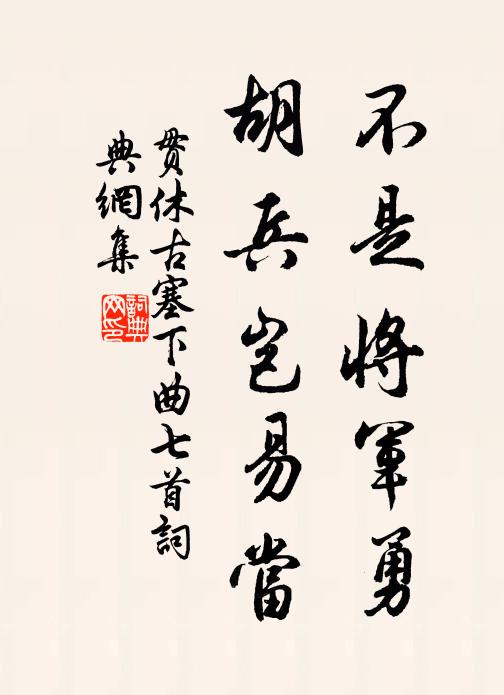 不是將軍勇
胡兵豈易當
貫休古塞下曲七首詞
典網集
詞典
网印